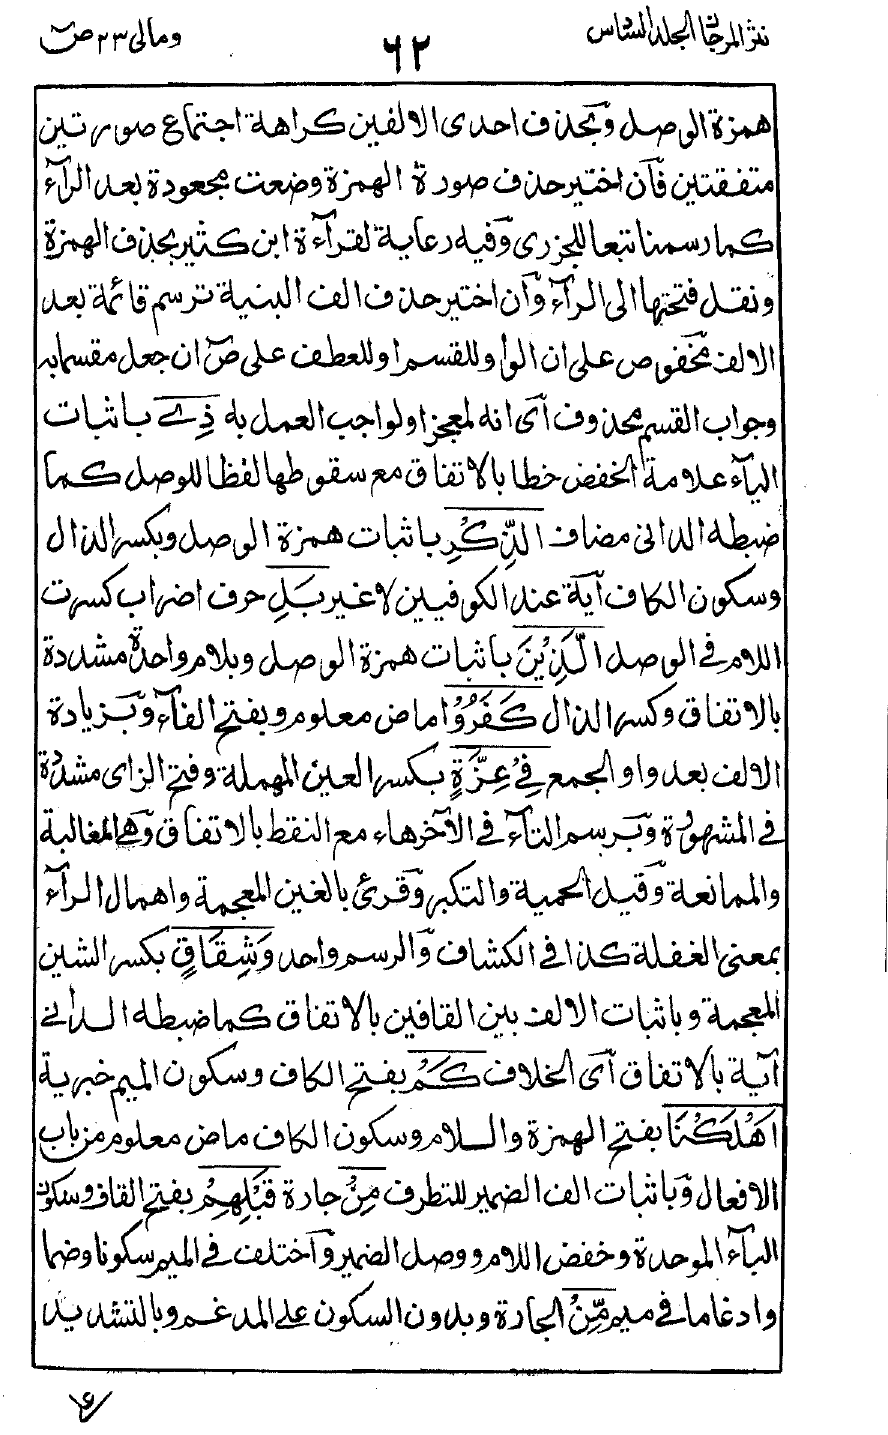 نثر المرجان الجلد السادس
٦٢
ومالى ٢٣ ص
همزة الوصل وبحذف احدى الالفين كراهة اجتماع صورتين
متفقتين فآن اختير حذف صورة الهمزة وضعت مجعودة بعد الرآء
كما رسمنا تبعا للجزرى وفيه رعاية لقرآءة ابن كثير بحذف الهمزة
ونقل فتحتها الى الرآء وآن اختير حذف الف البنية ترسم قائمة بعد
الالف مخفوص على ان الواو للقسم او للعطف على صٓ ان جعل مقسما به
وجواب القسم محذوف آى انه لمعجز او لواجب العمل به ذِے باثبات
اليآء علامة الخفض خطا بالاتفاق مع سقوطها لفظا للوصل كما
ضبطه الدانى مضاف الذِّكْرِ باثبات همزة الوصل وبكسر الذال
وسكون الكاف آية عند الكوفيين لا غير بَلِ حرف اضراب كسرت
اللام فى الوصل الَّذِيْنَ باثبات همزة الوصل وبلام واحدة مشددة
بالاتفاق وكسر الذال كَفَرُوْا ماض معلوم وبفتح الفآء وبزيادة
الالف بعد واو الجمع فِيْ عِزَّةٍ بكسر العين المهملة وفتح الزاى مشددة
فى المشهورة وبرسم التآء فى الآخر هاء مع النقط بالاتفاق وهى المغالبة
والممانعة وقيل الحمية والتكبر وقرئ بالغين المعجمة واهمال الرآء
بمعنى الغفلة كذا فى الكشاف والرسم واحد وَشِقَاقٍ بكسر الشين
المعجمة وباثبات الالف بين القافين بالاتفاق كما ضبطه الدانے
آية بالاتفاق آى الخلاف كَمْ بفتح الكاف وسكون الميم خبرية
اَهْلَكْنَا بفتح الهمزة واللام وسكون الكاف ماض معلوم من باب
الافعال وباثبات الف الضمير للتطرف مِنْ جارة قَبْلِهِمْ بفتح القاف وسكون
البآء الموحدة وخفض اللام ووصل الضمير وآختلف فى الميم سكونا وضما
وادغاما فى ميم مِّنْ الجارة وبدون السكون على المدغم وبالتشديد